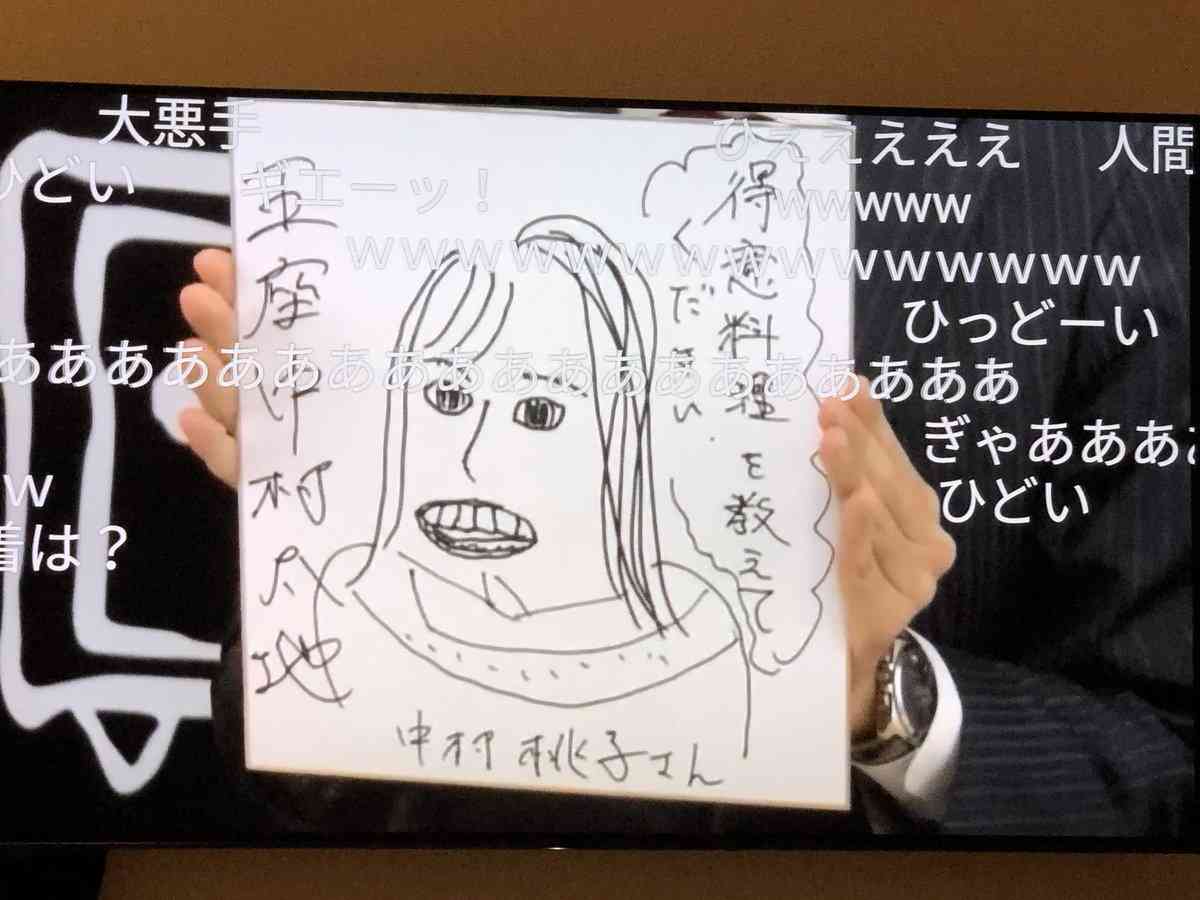 大悪手
ひえええええ
人間
ひどい
ギエーッ！
wwwwww
ｗｗｗｗｗｗｗｗｗｗｗｗｗｗｗ
ひっどーい
あああああああああああああああああああ
ぎゃあああ
w
ひどい
着は？
得意料理を教えて
ください.
王座中村太地
中村桃子さん